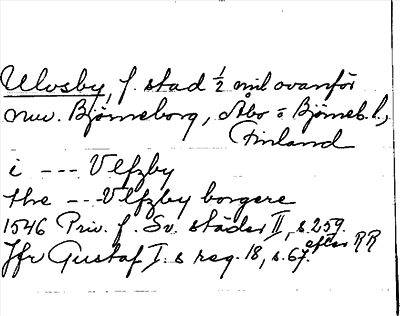 Ulvsby, f. stad ½ mil ovanför
nuv. Björneborg, Åbo = Björneb. l.,
Finland
i --- Vlfzby
the -- Vlfzby borgere
1546 Priv. f. Sv. städer II, s. 259.
efter RR
Jfr Gustaf I. s reg. 18, s. 67.